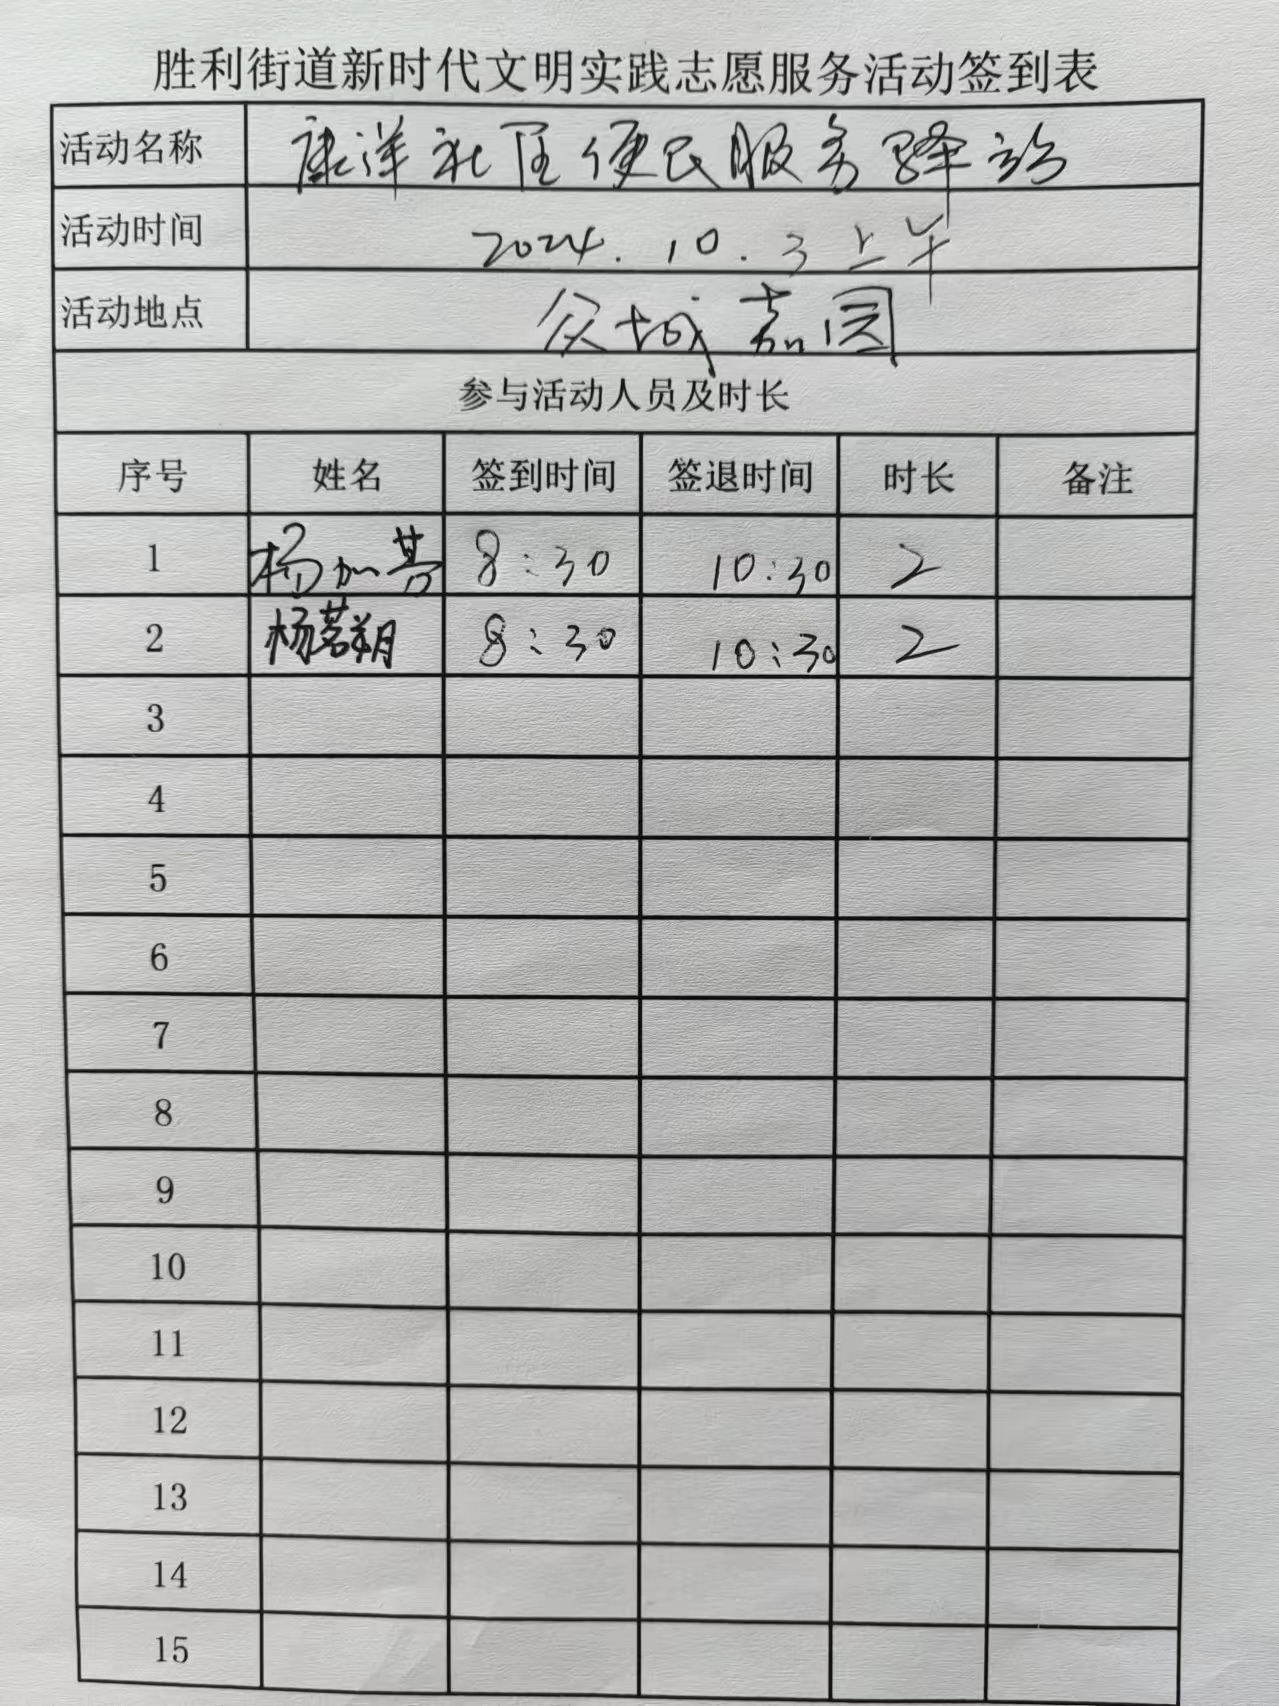 胜利街道新时代文明实践志愿服务活动签到表
活动名称 康洋社区便民服务驿站
活动时间 2024.10.3上午
活动地点 众城嘉园
参与活动人员及时长
序号 姓名 签到时间 签退时间 时长 备注
1 杨加 8:30 10:30 2
2 杨茗朔 8:30 10:30 2
3
4
5
6
7
8
9
10
11
12
13
14
15